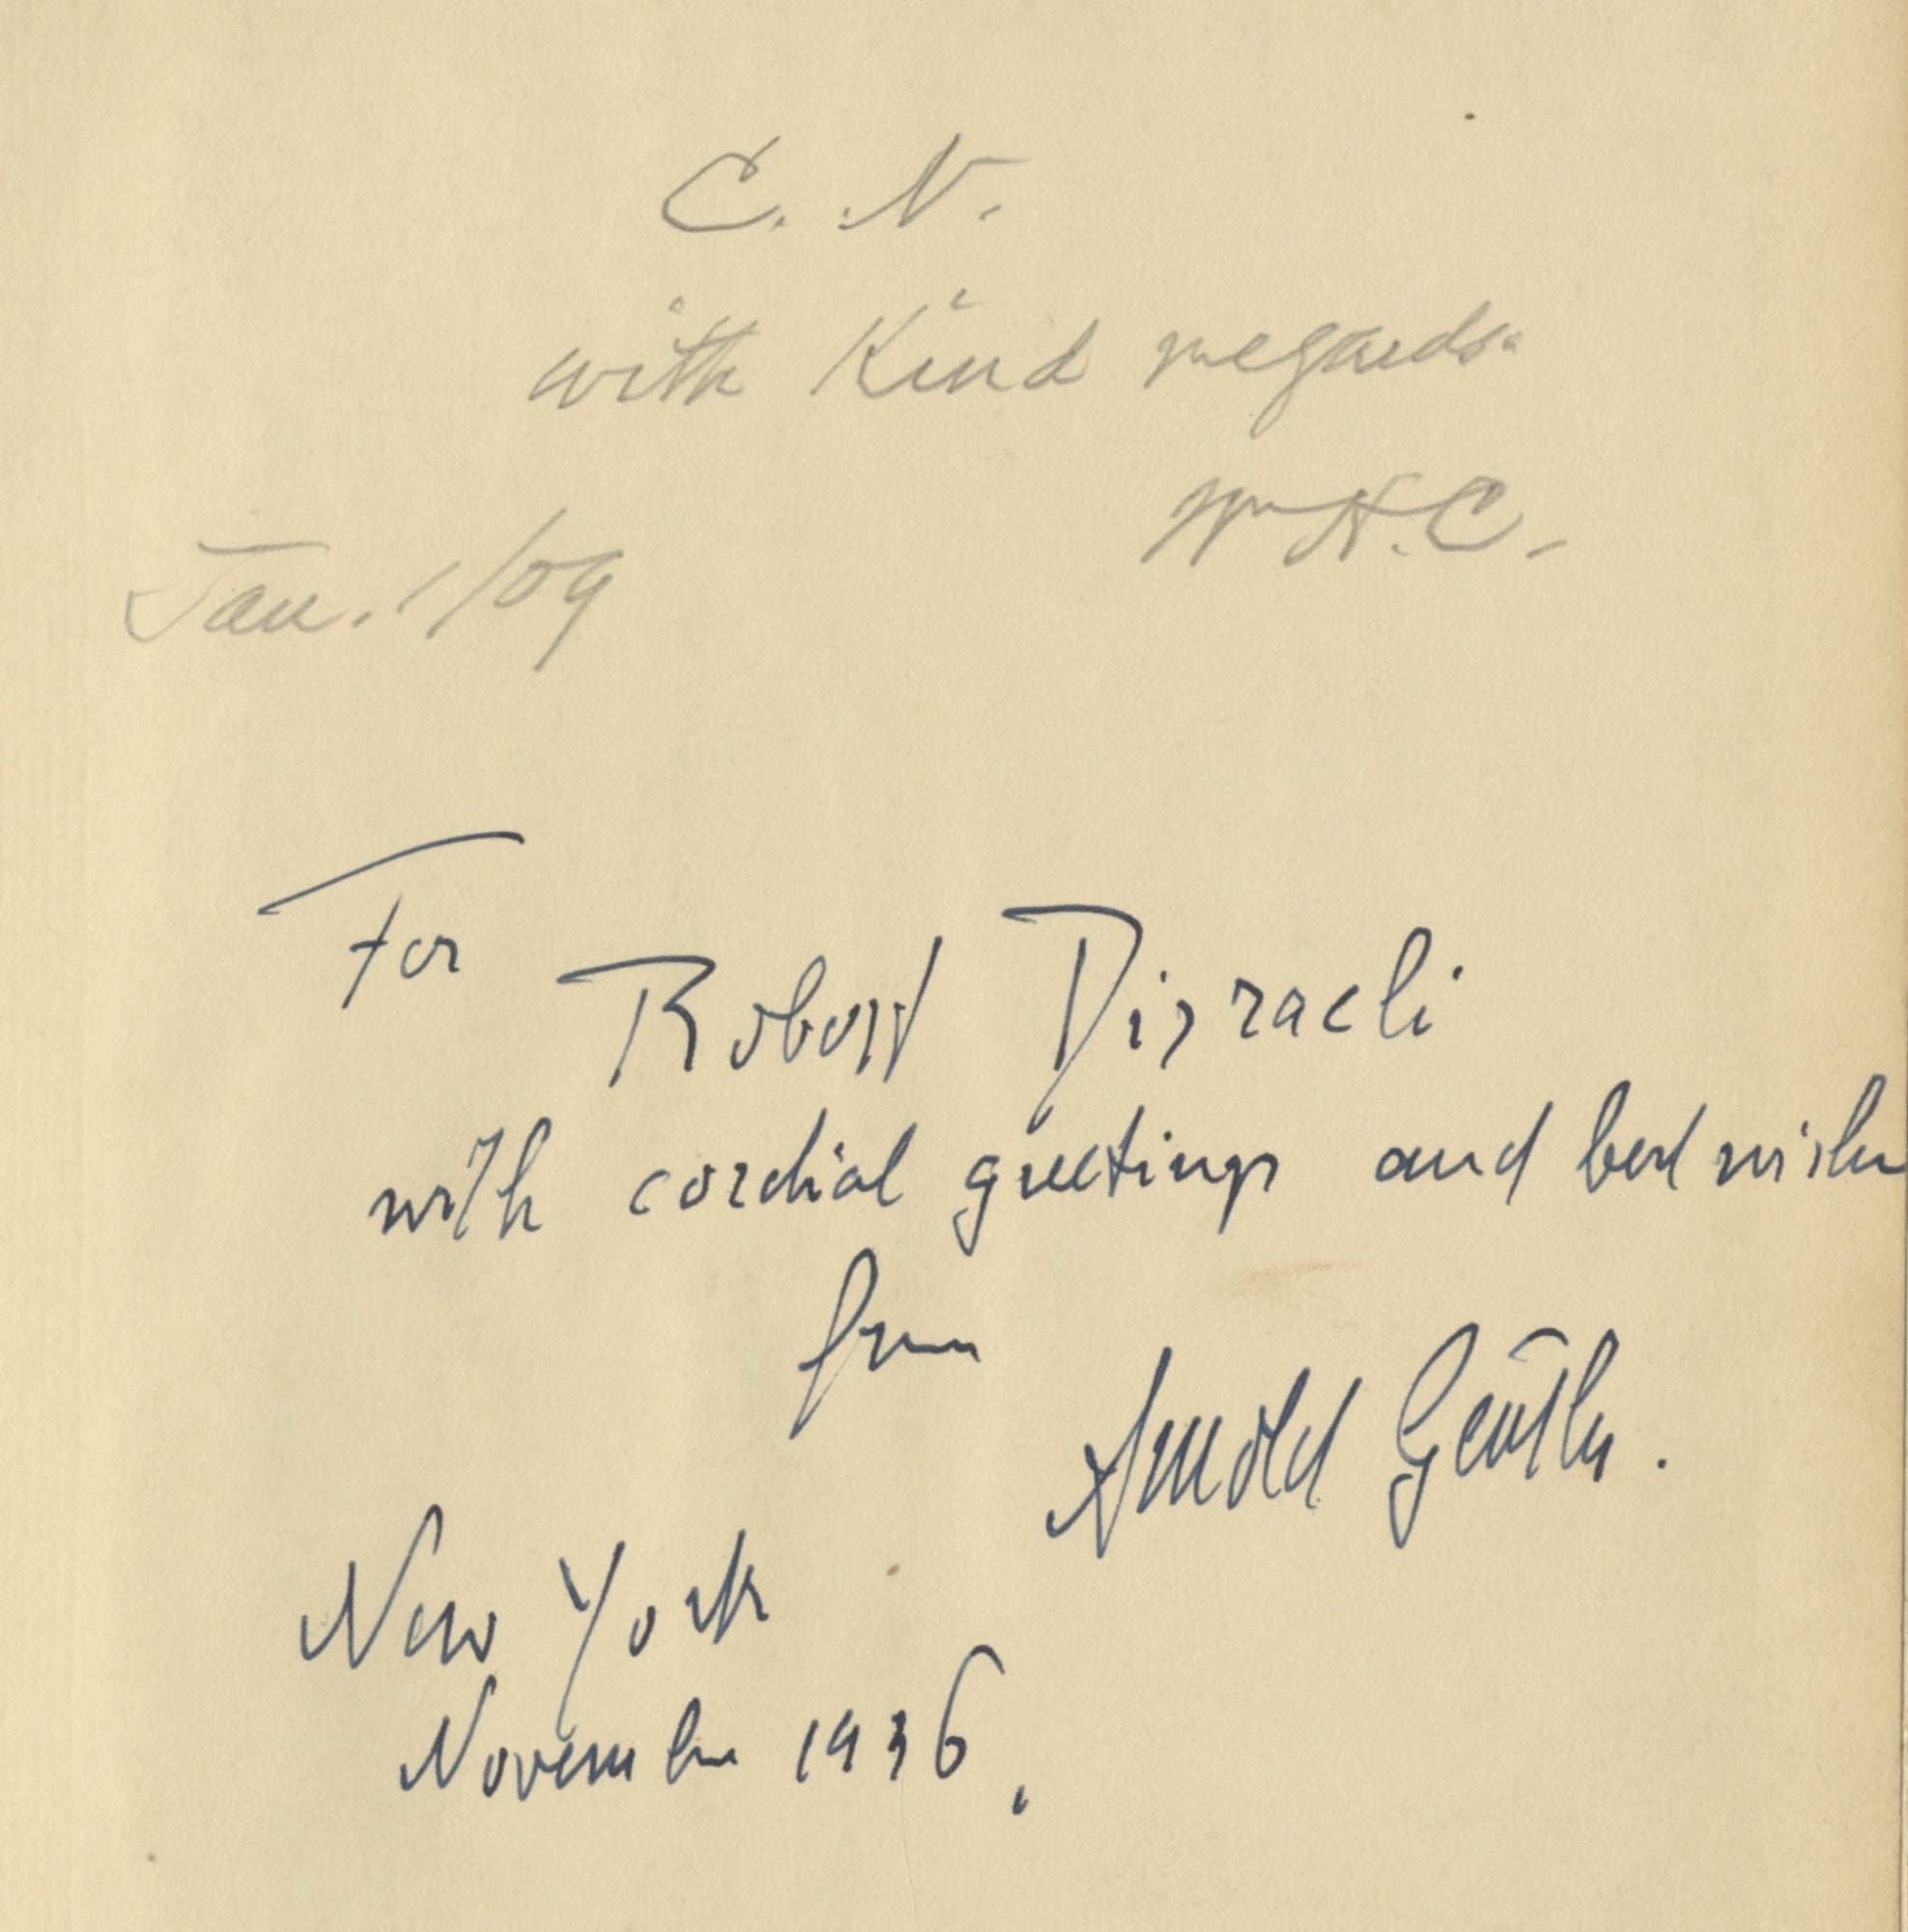 C. N.
with Kind regards.
Wm H. C.
Jan. 1/09
For
Robert Disraeli
with cordial greetings and best wishes
from
Arnold Genthe.
New York
November 1936.